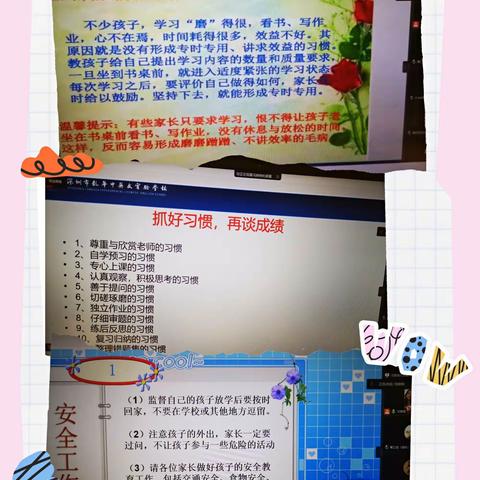 不少孩子，学习“磨”得很，看书、写作
业，心不在焉，时间耗得很多，效益不好。其
原因就是没有形成专时专用、讲求效益的习惯。
教孩子给自己提出学习内容的数量和质量要求，
一旦坐到书桌前，就进入适度紧张的学习状态
每次学习之后，要评价自己做得如何，家长
时给以鼓励。坚持下去，就能形成专时专用。
温馨提示：有些家长只要求学习，恨不得让孩子老
坐在书桌前看书、写作业，没有休息与放松的时间
这样，反而容易形成磨磨蹭蹭、不讲效率的毛病
抓好习惯，再谈成绩
• 1、尊重与欣赏老师的习惯
• 2、自学预习的习惯
• 3、专心上课的习惯
• 4、认真观察，积极思考的习惯
• 5、善于提问的习惯
• 6、切磋琢磨的习惯
• 7、独立作业的习惯
• 8、仔细审题的习惯
• 9、练后反思的习惯
10、复习归纳的习惯
整理错题集的习惯
1
安全工作
（1）监督自己的孩子放学后要按时
回家，不要在学校或其他地方逗留。
（2）注意孩子的外出，家长一定要
过问，不让孩子参与一些危险的活动
（3）请各位家长做好孩子的安全教
育工作，包括交通安全、食物安全、